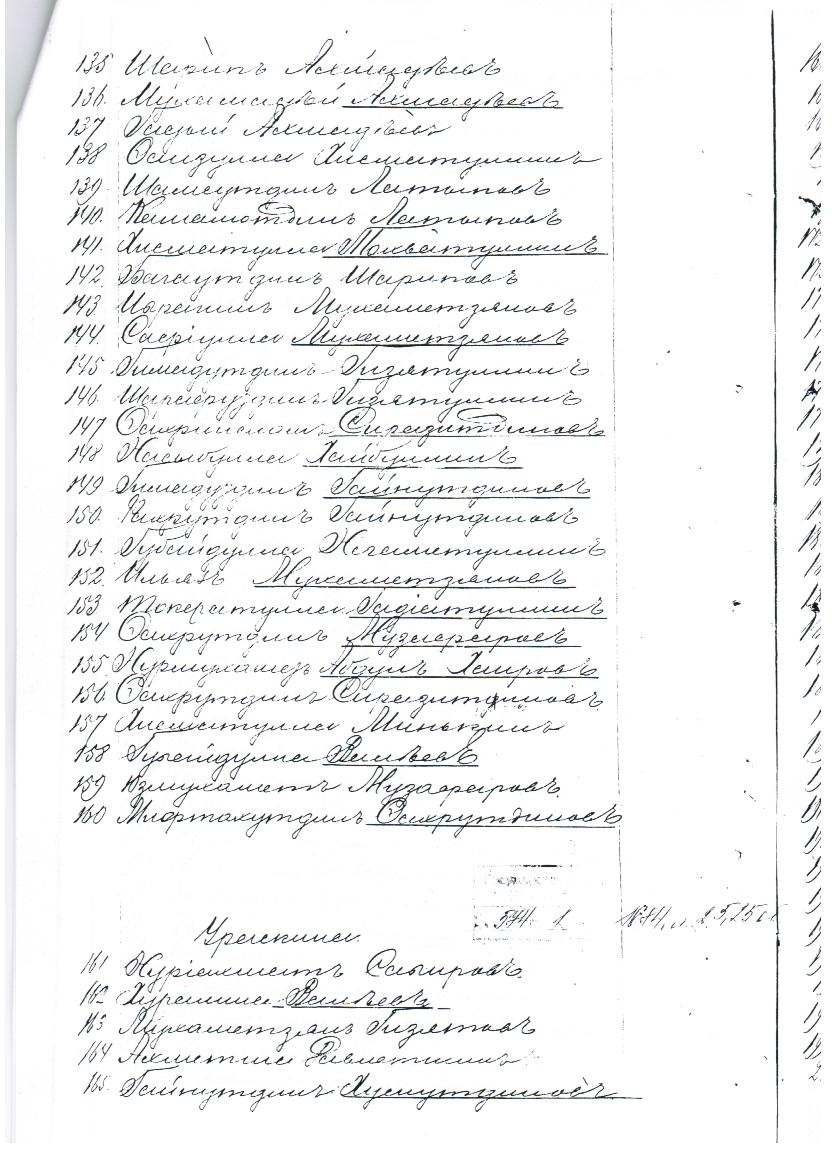 135 Шарипъ Ахмадѣевъ
136. Мухамадѣй Ахмадѣевъ
137 Гадый Ахмадѣевъ
138 Хисматуллинъ
139. Шамсутдинъ Латыповъ
140. Камалотдинъ Латыповъ
141. Хисматулла Тохватуллинъ
142 Багаутдинъ Шариповъ
143. Мухаметзяновъ
144. Сафіулла Мухаметзяновъ
145 Гимадутдинъ Гизятуллинъ
146. Шарафуздинъ Гизятуллинъ
147 Сиразитдиновъ
148 Насыбулла Хайбуллинъ
149 Гимадуздинъ Гайнутдиновъ
150. Фахрутдинъ Гайнутдиновъ
151. Губайдулла Негаметуллинъ
152. Ильязъ Мухаметзяновъ
153 Гадіатуллинъ
154 Фахрутдинъ Музафаровъ
155 Нурмухамезъ Абдулъ Хаировъ
156. Фахрутдинъ Сиразитдиновъ
157 Хисматулла Минькинъ
158 Губайдулла Валѣевъ
159 Юзмухаметъ Музафаровъ.
160 Мифтахутдинъ Фахрутдиновъ
574 1
№ 84, л. 25, 25 об
161 Нуріахметъ Сатыровъ
162 Хурамша Валѣевъ
163 Мухаметзянъ Гизятовъ
164 Ахметша Давлетшинъ
165. Гайнутдинъ Хуснутдиновъ